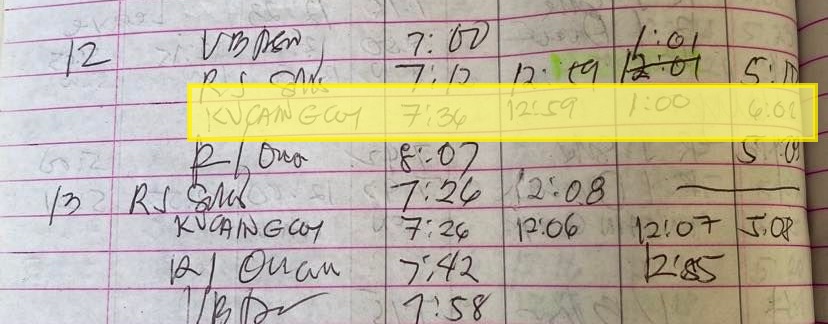 12 VBDEN 7:00 1:01
RJ SMS 7:12 12:59 12:01 5:11
KVCAINGCOY 7:36 12:59 1:00 6:08
R/ Ona 8:07 5:09
13 RJ SMS 7:26 12:08
KVCAINGCOY 7:26 12:06 12:07 5:08
R/ Onan 7:42 12:55
VB 7:58